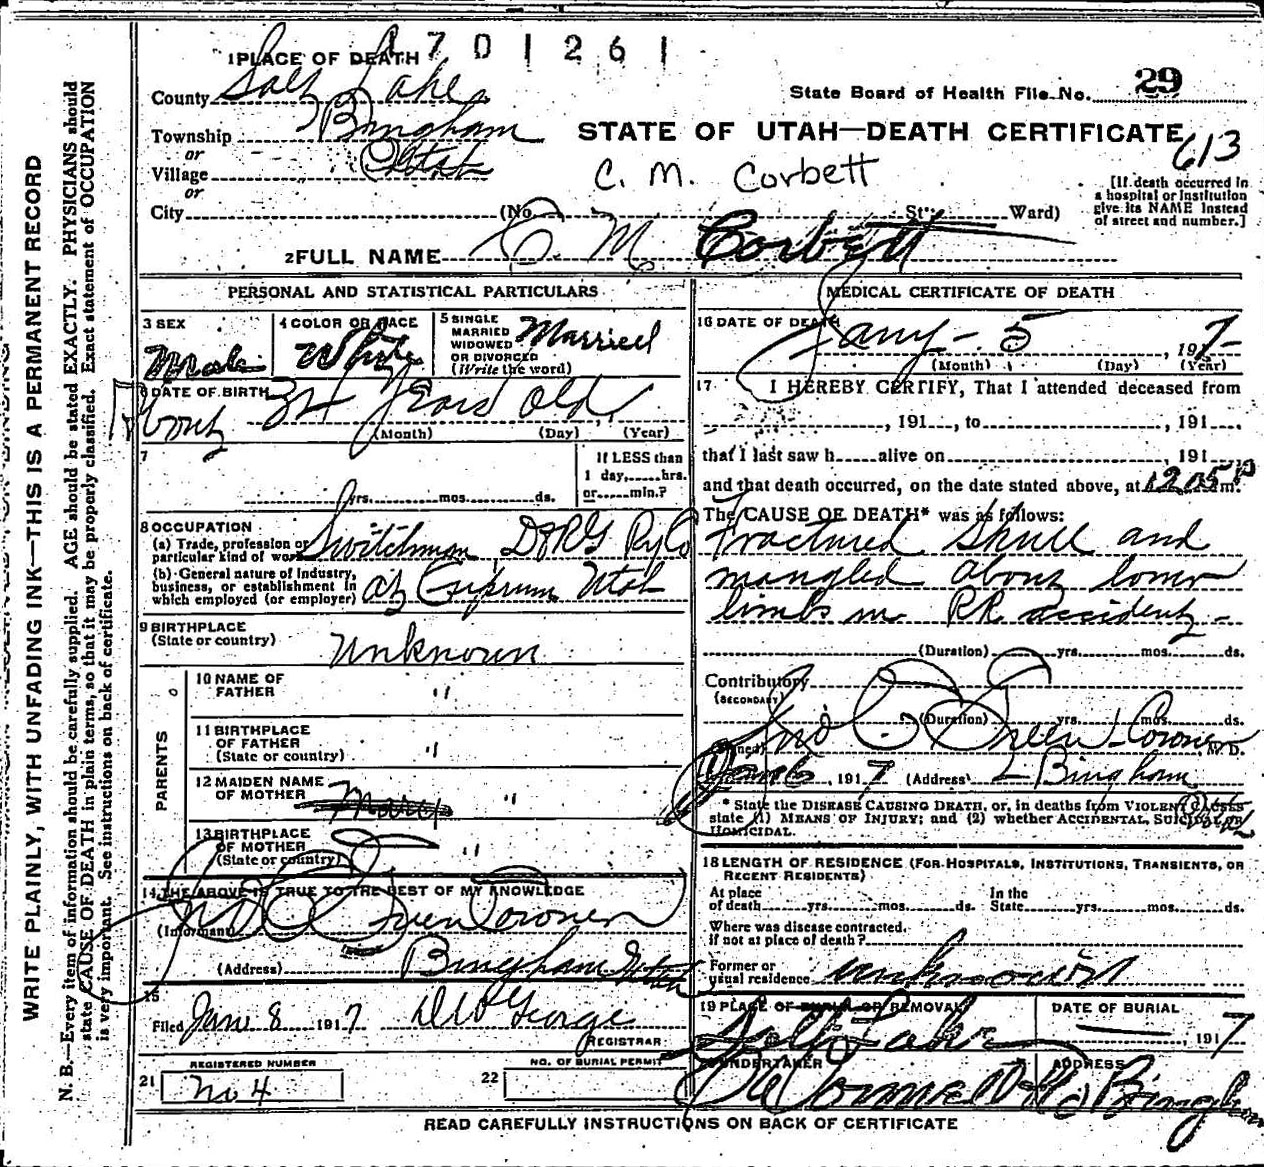 1701261
1 PLACE OF DEATH
County Salt Lake
State Board of Health File No. 29
Township Bingham
STATE OF UTAH—DEATH CERTIFICATE
613
or
Village Utah
C. M. Corbett
or
[If death occurred in
a hospital or institution
give its NAME instead
of street and number.]
City (No. St.; Ward)
2 FULL NAME C. M. Corbett
PERSONAL AND STATISTICAL PARTICULARS
3 SEX
Male
4 COLOR OR RACE
White
5 SINGLE
MARRIED
WIDOWED
OR DIVORCED
(Write the word)
Married
6 DATE OF BIRTH
About 34 Years old
(Month) (Day) (Year)
7
yrs. mos. ds.
If LESS than
1 day, hrs.
or min.?
8 OCCUPATION
(a) Trade, profession or
particular kind of work Switchman D&RG Ry Co
(b) General nature of Industry,
business, or establishment in
which employed (or employer) at Cuprum Utah
9 BIRTHPLACE
(State or country) Unknown
PARENTS
10 NAME OF
FATHER "
11 BIRTHPLACE
OF FATHER
(State or country) "
12 MAIDEN NAME
OF MOTHER Mary "
13 BIRTHPLACE
OF MOTHER
(State or country) "
14 THE ABOVE IS TRUE TO THE BEST OF MY KNOWLEDGE
(Informant) Jno C Green Coroner
(Address) Bingham Utah
15
Filed Jan 8 1917 George
REGISTRAR
REGISTERED NUMBER
21 No 4
NO. OF BURIAL PERMIT
22
MEDICAL CERTIFICATE OF DEATH
16 DATE OF DEATH
Jany - 5, 1917
(Month) (Day) (Year)
17 I HEREBY CERTIFY, That I attended deceased from
, 191 , to , 191
that I last saw h alive on , 191
and that death occurred, on the date stated above, at 12.05 P m.
The CAUSE OF DEATH* was as follows:
Fractured Skull and
mangled about lower
limbs in RR accident -
(Duration) yrs. mos. ds.
Contributory
(SECONDARY)
(Duration) yrs. mos. ds.
(Signed) Jno C Green Coroner M. D.
Jan 6, 1917 (Address) Bingham
Utah
* State the DISEASE CAUSING DEATH, or, in deaths from VIOLENT CAUSES
state (1) MEANS OF INJURY; and (2) whether ACCIDENTAL, SUICIDAL OR
HOMICIDAL.
18 LENGTH OF RESIDENCE (FOR HOSPITALS, INSTITUTIONS, TRANSIENTS, OR
RECENT RESIDENTS)
At place
of death yrs. mos. ds.
In the
State yrs. mos. ds.
Where was disease contracted,
if not at place of death?
Former or
usual residence unknown
19 PLACE OF BURIAL OR REMOVAL
Salt Lake
DATE OF BURIAL
, 1917
20 UNDERTAKER
ADDRESS
Bingham
READ CAREFULLY INSTRUCTIONS ON BACK OF CERTIFICATE
WRITE PLAINLY, WITH UNFADING INK—THIS IS A PERMANENT RECORD
N. B.—Every item of information should be carefully supplied. AGE should be stated EXACTLY. PHYSICIANS should
state CAUSE OF DEATH in plain terms, so that it may be properly classified. Exact statement of OCCUPATION
is very important. See instructions on back of certificate.